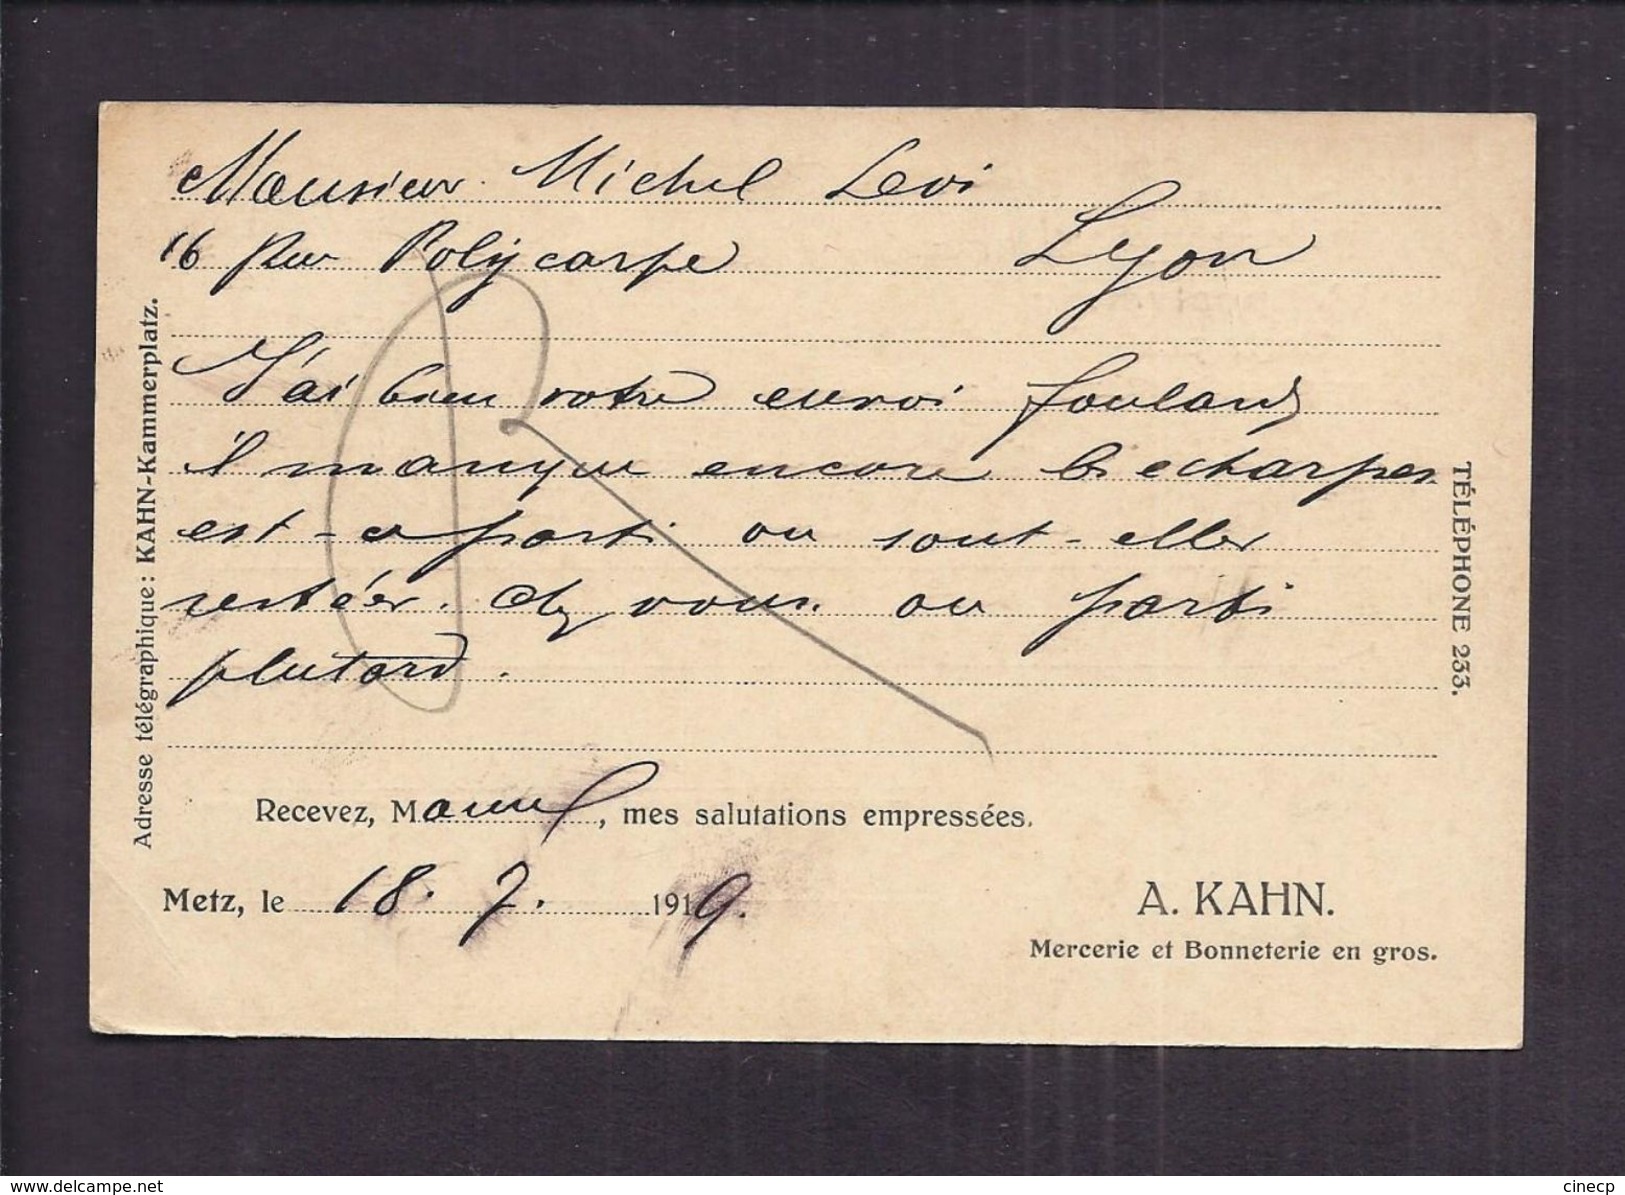 Monsieur Michel Levi
16 Rue Polycarpe Lyon
J'ai bien votre envoi foulards
il manque encore les echarpes
est-a parti ou sont-elles
restées chez vous ou parti
plutard.
Recevez, M, mes salutations empressées.
Metz, le 18. 7. 1919.
A. KAHN.
Mercerie et Bonneterie en gros.
Adresse télégraphique: KAHN-Kammerplatz.
TÉLÉPHONE 233.
www.delcampe.net
cinecp